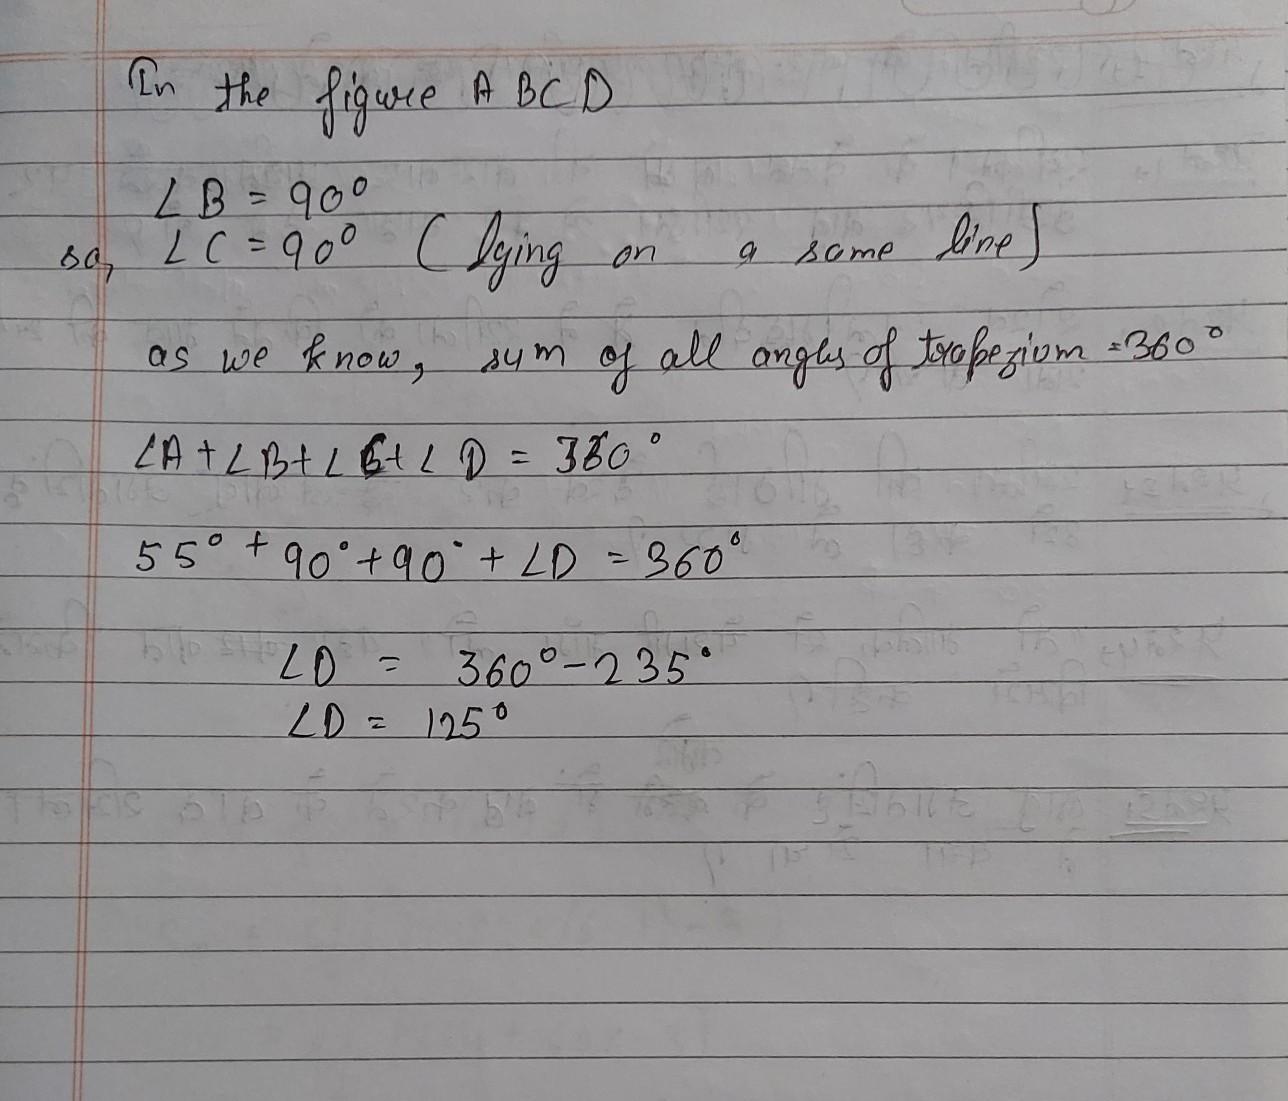 In the figure A BCD
∠B = 90°
so, ∠C = 90° ( lying on a same line)
as we know, sum of all angles of trapezium = 360°
∠A + ∠B + ∠C + ∠D = 360°
55° + 90° + 90° + ∠D = 360°
∠D = 360° - 235°
∠D = 125°